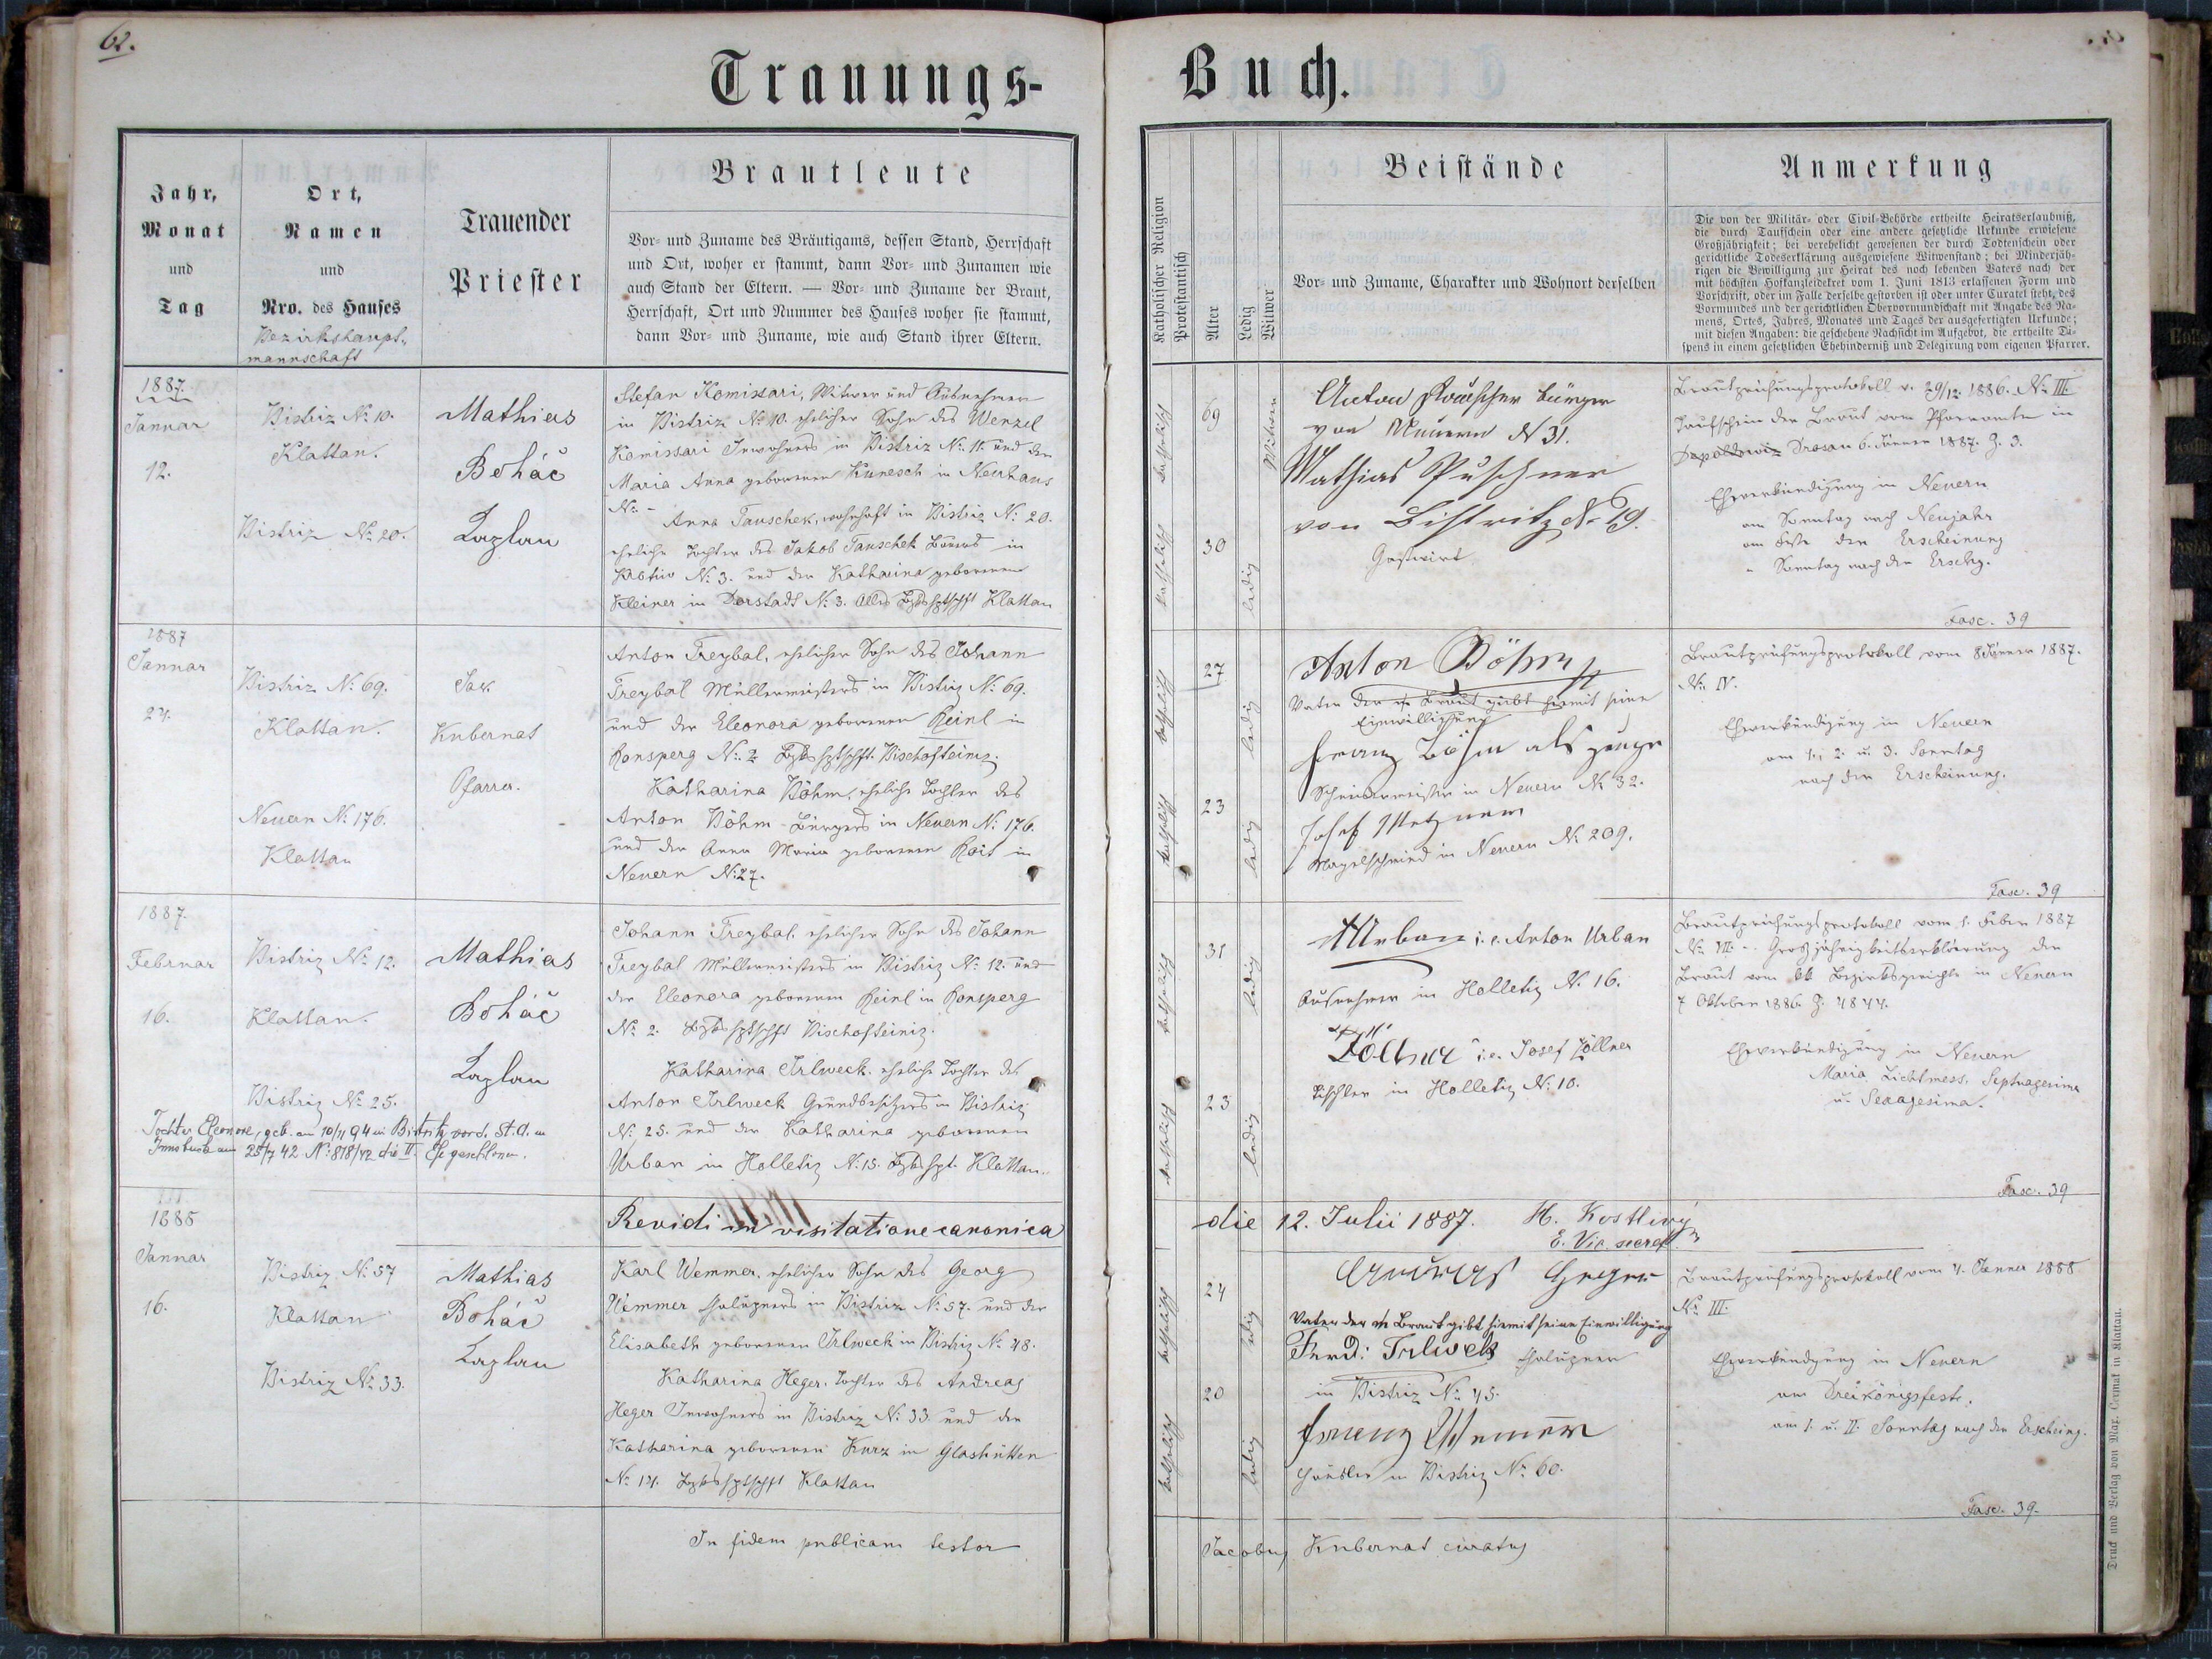 62.
Trauungs-
Buch.
Jahr,
Monat
und
Tag
Ort,
Namen
und
Nro. des Hauses
Bezirkshaupt-
mannschaft
Trauender
Priester
Brautleute
Vor- und Zuname des Bräutigams, dessen Stand, Herrschaft
und Ort, woher er stammt, dann Vor- und Zunamen wie
auch Stand der Eltern. — Vor- und Zuname der Braut,
Herrschaft, Ort und Nummer des Hauses woher sie stammt,
dann Vor- und Zuname, wie auch Stand ihrer Eltern.
Katholischer Religion
Protestantisch
Alter
Ledig
Witwer
Beistände
Vor- und Zuname, Charakter und Wohnort derselben
Anmerkung
Die von der Militär- oder Civil-Behörde ertheilte Heiratserlaubniß,
die durch Taufschein oder eine andere gesetzliche Urkunde erwiesene
Großjährigkeit; bei verehelicht gewesenen der durch Todtenschein oder
gerichtliche Todeserklärung ausgewiesene Witwenstand; bei Minderjäh-
rigen die Bewilligung zur Heirat des noch lebenden Vaters nach der
mit höchsten Hofkanzleidekret vom 1. Juni 1813 erlassenen Form und
Vorschrift, oder im Falle derselbe gestorben ist oder unter Curatel steht, des
Vormundes und der gerichtlichen Obervormundschaft mit Angabe des Na-
mens, Ortes, Jahres, Monates und Tages der ausgefertigten Urkunde;
mit diesen Angaben: die geschehene Nachsicht im Aufgebot, die ertheilte Di-
spens in einem gesetzlichen Ehehinderniß und Delegirung vom eigenen Pfarrer.
1887.
Jannar
12.
Bistriz No 10.
Klattau.
Bistriz No 20.
Mathias
Boháč
Kaplan
Stefan Komissari, Witwer und Ausnehmer
in Bistriz No 10. ehelicher Sohn des Wenzel
Komissari Inwohners in Bistriz No 11. und der
Maria Anna geborenen Kunesch in Neuhaus
No -
Anna Tauschek, wohnhaft in Bistriz No 20.
eheliche Tochter des Jakob Tauschek Bauers in
No 3. und der Katharina geborenen
Kleiner in Dorstadt No 3. alles Bzkshptschft Klattau
katholisch
69
Witwer
katholisch
30
ledig
Anton Bürger
von Neuern N 31.
Mathias Puschner
von Bistritz No 19.
Gastwirt
Brautprüfungsprotokoll v. 29/12. 1886. No III
Taufschein der Braut vom Pfarramte in
Drosau 6. Jänner 1887. Z. 3.
Eheverkündigung in Neuern
am Sonntag nach Neujahr
am Feste der Erscheinung
" Sonntag nach der Erschg.
Fasc. 39
1887
Jannar
24.
Bistriz No 69.
Klattau.
Neuern No 176.
Klattau
Jak.
Kubernat
Pfarrer.
Anton Treybal, ehelicher Sohn des Johann
Treybal Müllermeisters in Bistriz No 69.
und der Eleonora geborenen Reinl in
Ronsperg No 2 Bzkshptschft. Bischofteiniz.
Katharina Böhm, eheliche Tochter des
Anton Böhm Bürgers in Neuern No 176.
und der Anna Maria geborenen in
Neuern No 27.
katholisch
27
ledig
katholisch
23
ledig
Anton Böhm
Vater der Braut gibt hiemit seine
Einwilligung
Franz Böhm als Zeuge
in Neuern No 32.
Josef Metzner
Nagelschmied in Neuern No 209.
Brautprüfungsprotokoll vom 8 Jänner 1887.
No IV.
Eheverkündigung in Neuern
am 1., 2. u. 3. Sonntag
nach der Erscheinung.
Fasc. 39
1887.
Februar
16.
Bistriz No 12.
Klattau.
Bistriz No 25.
Mathias
Boháč
Kaplan
Tochter Eleonore, geb. am 10/11 94 in Bistritz, vor d. St.A. in
Innsbruck am 25/7 42 No 818/42 die II. Ehe geschlossen.
Johann Treybal, ehelicher Sohn des Johann
Treybal Müllermeisters in Bistriz No 12. und
der Eleonora geborenen Reinl in Ronsperg
No 2. Bzkshptschft Bischofteiniz.
Katharina Irlweck, eheliche Tochter des
Anton Irlweck Grundbesitzers in Bistriz
No 25. und der Katharina geborenen
Urban in Holletiz No 15. Bzkshpt. Klattau.
katholisch
31
ledig
katholisch
23
ledig
AUrban i. e. Anton Urban
Ausnehmer in Holletiz No 16.
Zöllner i. e. Josef Zöllner
Tischler in Holletiz No 10.
Brautprüfungsprotokoll vom 1. Feber 1887
No VII. - Großjährigkeitserklärung der
Braut vom kk. Bezirksgerichte in Neuern
7 Oktober 1886. Z. 4844.
Eheverkündigung in Neuern
Maria Lichtmess, Septuagesima
u. Sexagesima.
Fasc. 39
Revidi in visitatione canonica
die 12. Julii 1887. H. Kostlivý
E. Vic. secret.
1888
Jannar
16.
Bistriz No 57
Klattau
Bistriz No 33.
Mathias
Boháč
Kaplan
Karl Wemmer, ehelicher Sohn des Georg
Wemmer Chalupners in Bistriz No 57. und der
Elisabeth geborenen Irlweck in Bistriz No 48.
Katharina Heger, Tochter des Andreas
Heger Inwohners in Bistriz No 33. und der
Katharina geborenen Kurz in Glashütten
No 14. Bzkshptschft Klattau
katholisch
24
ledig
katholisch
20
ledig
Andreas Heger
Vater der Braut gibt hiemit seine Einwilligung
Ferd: Irlweck Chalupner
in Bistriz No 45.
Franz Wemmer
Häusler in Bistriz No 60.
Brautprüfungsprotokoll vom 4. Jänner 1888
No III.
Eheverkündigung in Neuern
am Dreikönigsfeste,
am I. u. II. Sonntag nach der Erscheing.
Fasc. 39.
In fidem publicam testor
Jacobus Kubernat curatus
Druck und Verlag von Max. Cermak in Klattau.